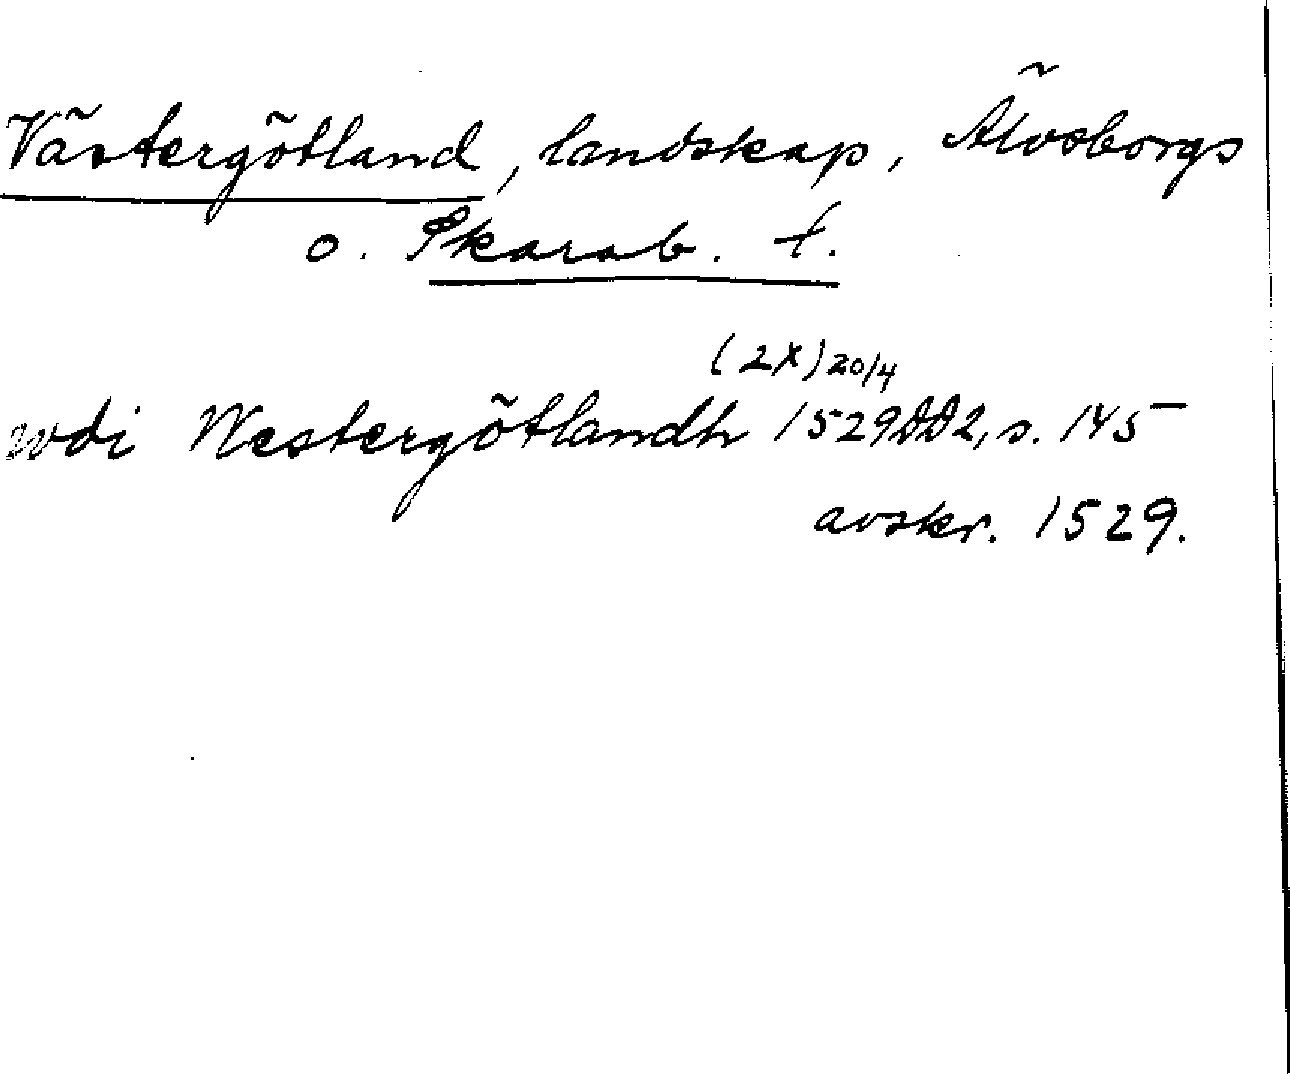 Västergötland, landskap, Älvsborgs
o. Skarab. l.
(2X) 20/4
wdi Westergötlandh 1529 DD2, s. 145
avskr. 1529.